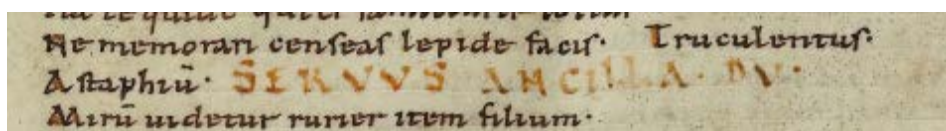 Ne memorari censeaſ lepide faciſ· Truculentuſ·
Aſtaphiū· SERVVS ANCILLA· DV·
Mirū uidetur rurıer item filium·